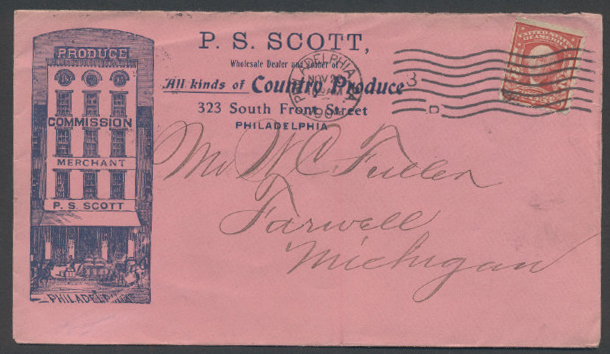 PRODUCE
COMMISSION
MERCHANT
P. S. SCOTT
PHILADELPHIA
P. S. SCOTT,
Wholesale Dealer and of
All kinds of Country Produce
323 South Front Street
PHILADELPHIA
PHILADELPHIA, PA.
NOV
3
D
Mr W C Fuller
Farwell
Michigan